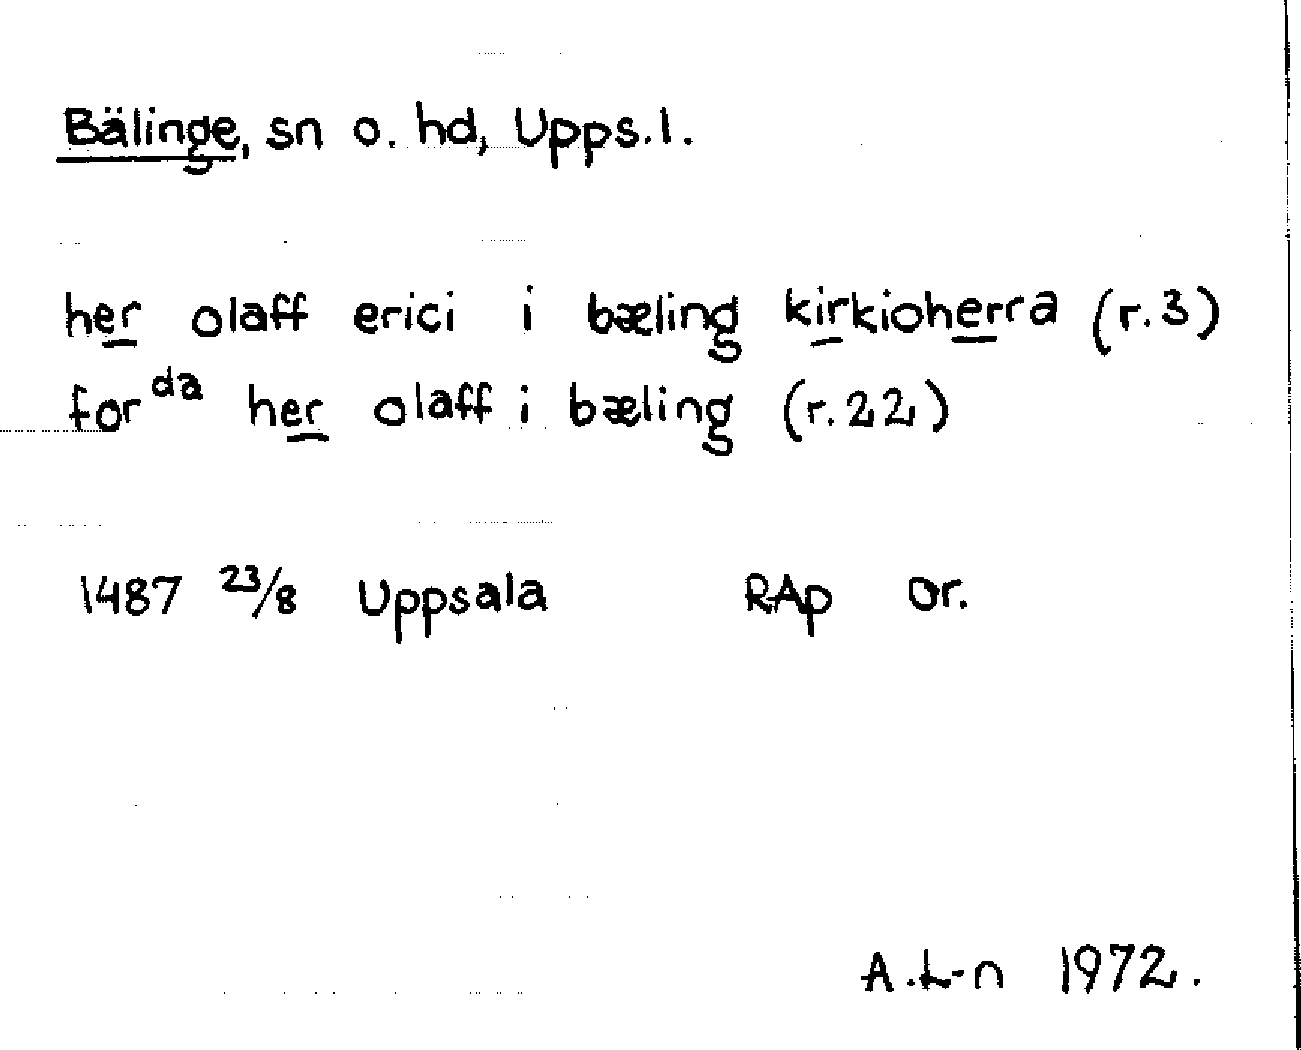 Bälinge, sn o. hd, Upps.l.
her olaff erici i bæling kirkioherra (r.3)
for da her olaff i bæling (r.22)
1487 23/8 Uppsala RAp or.
A.L-n 1972.